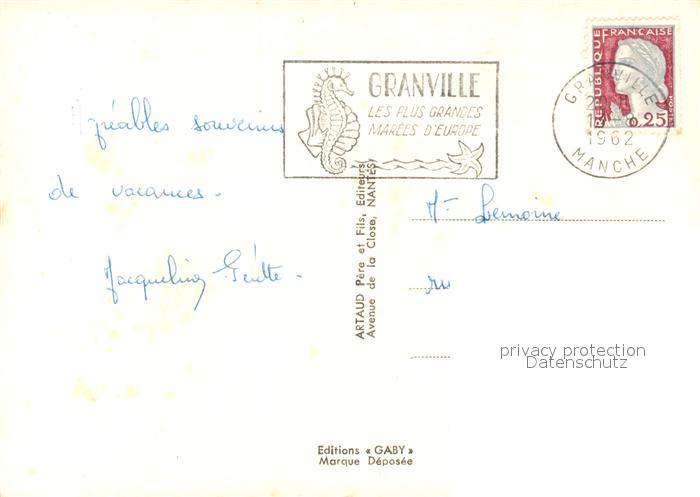 Agréables souvenirs
de vacances.
GRANVILLE
LES PLUS GRANDES
MARÉES D'EUROPE
REPUBLIQUE FRANCAISE
0,25
GRANVILLE
1962
MANCHE
ARTAUD Père et Fils, Editeurs
Avenue de la Close, NANTES
Mr Lemoine
privacy protection
Datenschutz
Editions « GABY »
Marque Déposée